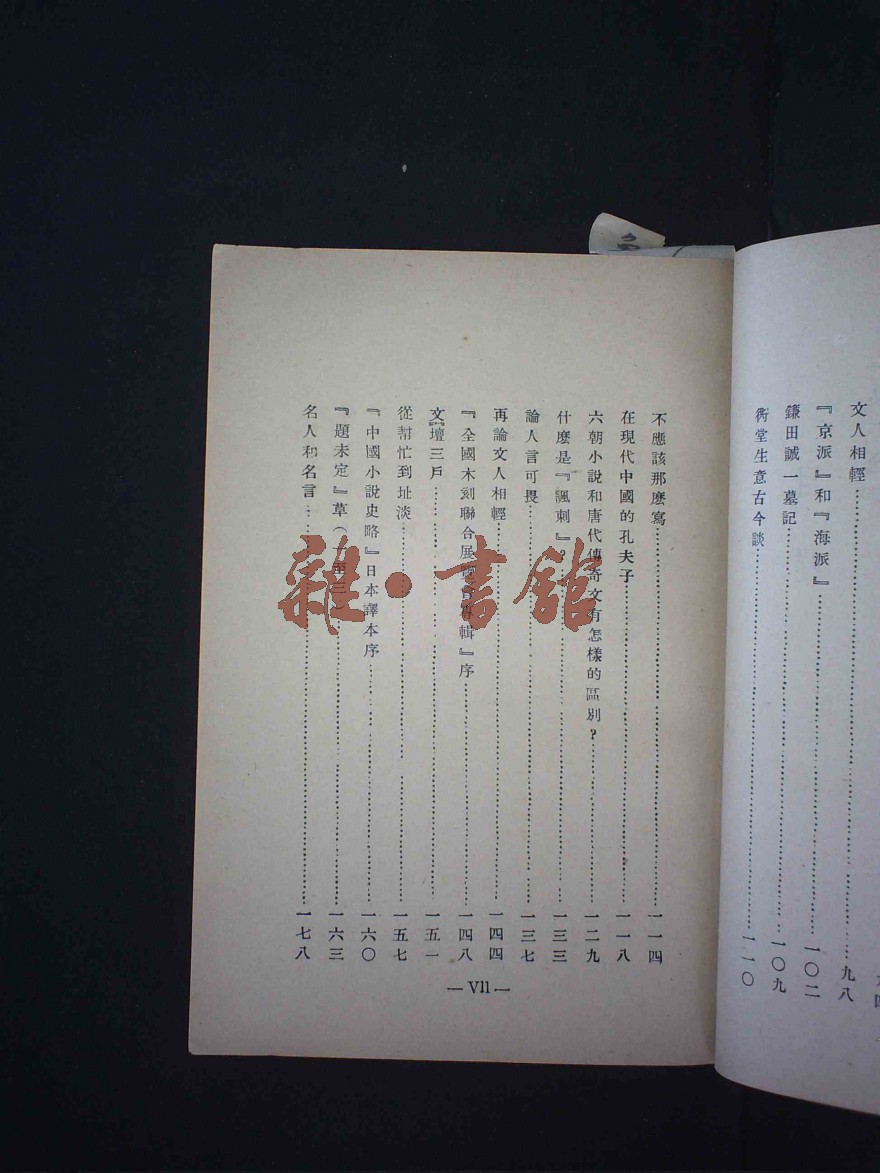 文人相輕 九八
『京派』和『海派』 一〇二
鎌田誠一墓記 一〇九
衖堂生意古今談 一一〇
不應該那麽寫 一一四
在現代中國的孔夫子 一一八
六朝小説和唐代傳奇文有怎樣的區別？ 一二九
什麽是『諷刺』？ 一三三
論人言可畏 一三七
再論文人相輕 一四四
『全國木刻聯合展覽會專輯』序 一四八
文壇三戶 一五一
從幫忙到扯淡 一五七
『中國小説史略』日本譯本序 一六〇
『題未定』草（一至三） 一六三
名人和名言 一七八
— VII —
雜·書館